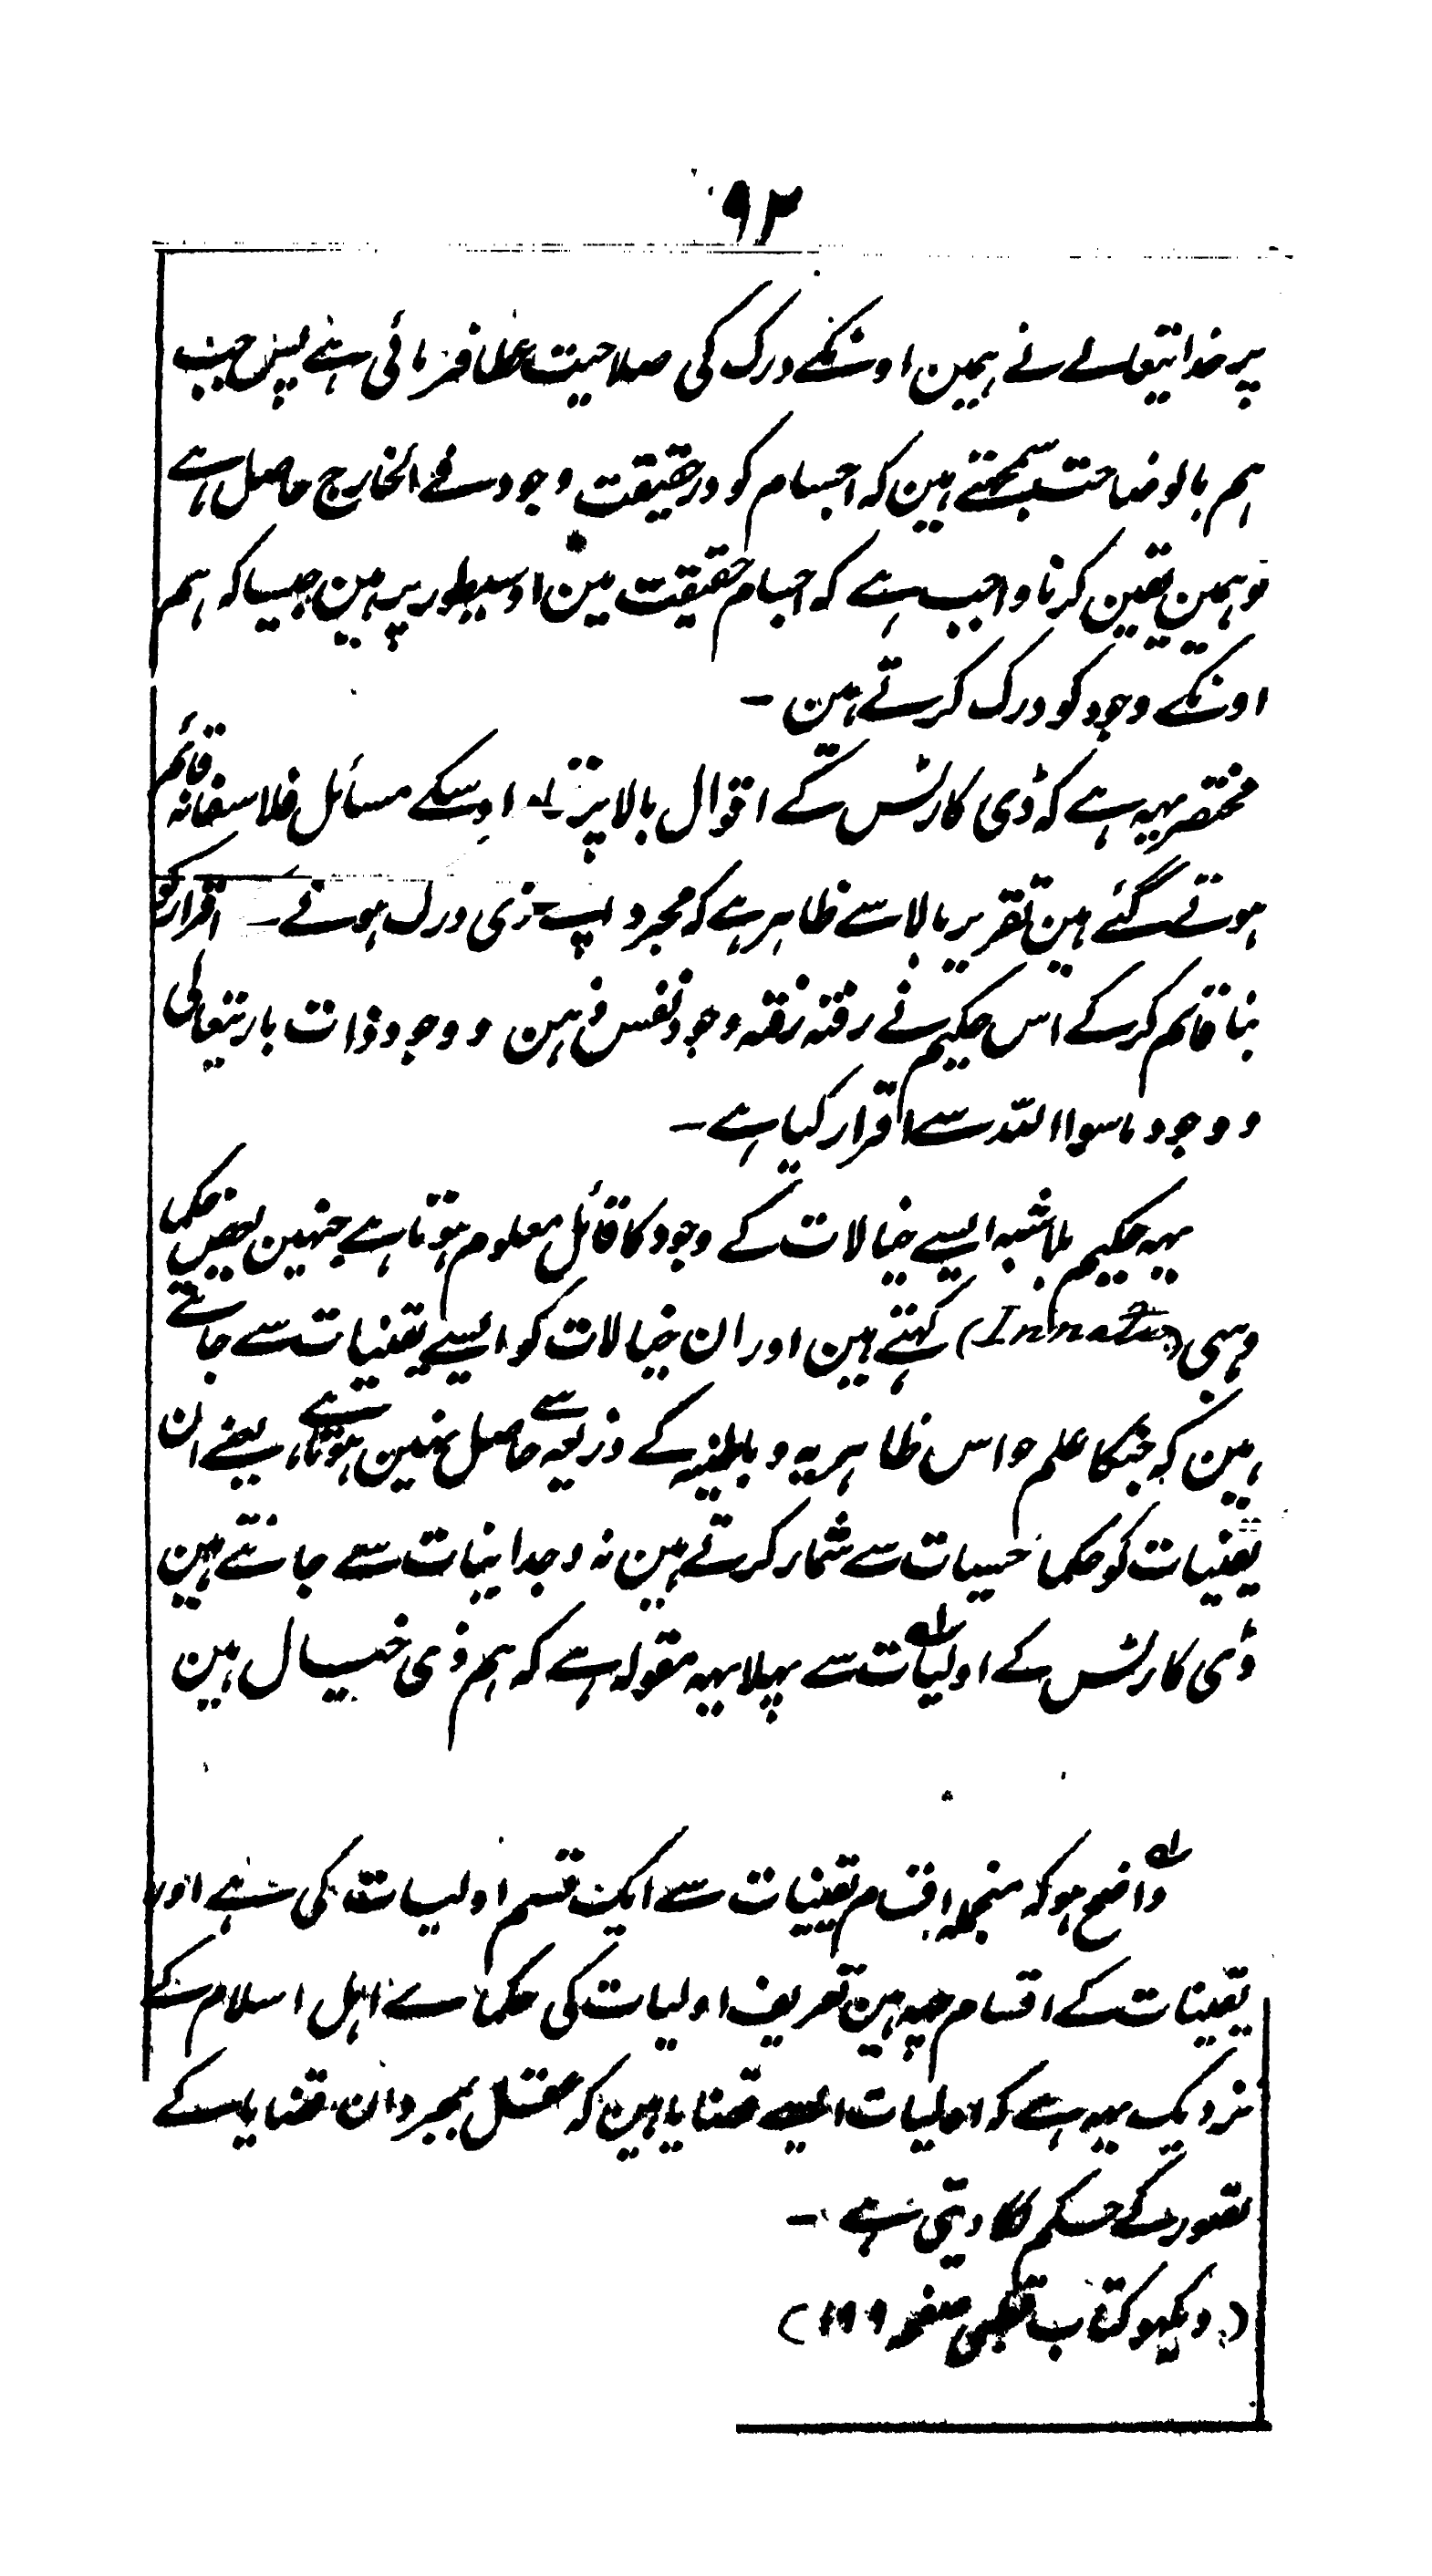 ۹۲
پر خدا یتعالے نے ہمین اونکے درک کی صلاحیت عطا فرمائی ہے پس جب
ہم بالوضاحت سمجھتے ہین کہ اجسام کو درحقیقت وجود فے الخارج حاصل ہے
تو ہمین یقین کرنا واجب ہے کہ اجسام حقیقت مین اوسیطور پر ہین جیسا کہ ہم
اونکے وجود کو درک کرتے ہین ۔
مختصر یہہ ہے کہ ڈی کارٹس کے اقوال بالا پر اوسکے مسائل فلاسفانہ قائم
ہوتے گئے ہین تقریر بالا سے ظاہر ہے کہ مجرد اپنے ذی درک ہونے اقرار کو
بنا قائم کرکے اس حکیم نے رفتہ رفتہ وجود نفس ذہن و وجود ذات باریتعالی
و وجود ماسوااللہ سے اقرار کیا ہے ۔
یہہ حکیم بلاشبہ ایسے خیالات کے وجود کا قائل معلوم ہوتا ہے جنہین بعض حکما
وہبی (Innate) کہتے ہین اور ان خیالات کو ایسے یقنیات سے جانتے
ہین کہ جنکا علم حواس ظاہریہ و باطنیہ کے ذریعہ سے حاصل نہین ہوتا ہے، یعنے ان
یقنیات کو حکما حسیات سے شمار کرتے ہین نہ وجدانیات سے جانتے ہین
ڈی کارٹس کے اولیات لہ سے پہلا یہہ مقولہ ہے کہ ہم ذی خیال ہین
لہ واضح ہو کہ منجملہ اقسام یقینیات سے ایک قسم اولیات کی ہے اور
یقینات کے اقسام چہہ ہین تعریف اولیات کی حکماے اہل اسلام کے
نزدیک یہہ ہے کہ اولیات ایسے قضایا ہین کہ عقل بمجرد ان قضایا کے
تصور کے حکم لگا دیتی ہے ۔
(دیکھو کتاب قطبی صفحہ